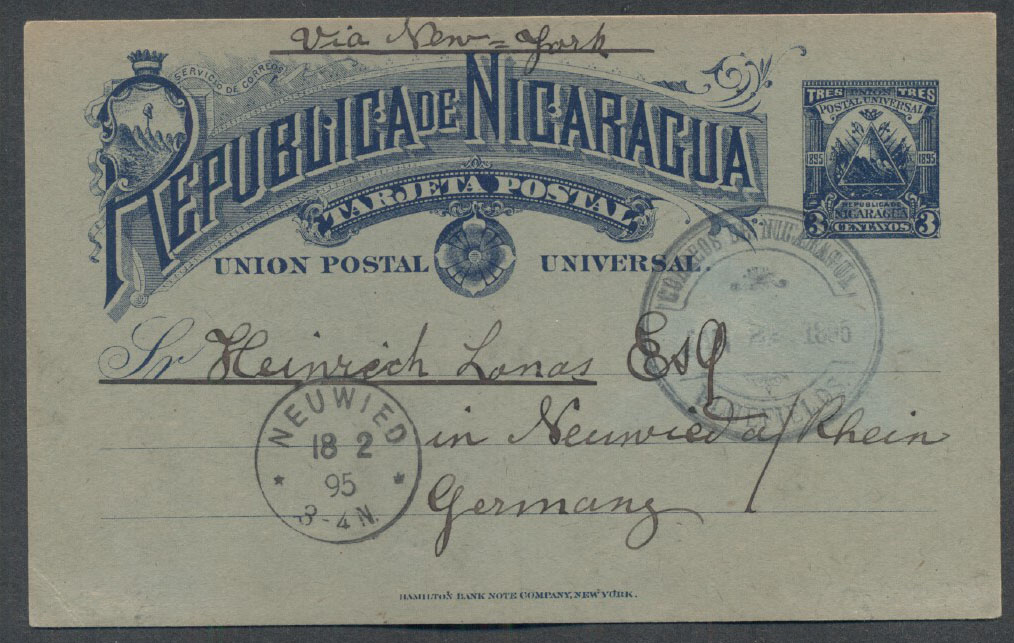 Via New=York
SERVICIO DE CORREOS
REPUBLICA DE NICARAGUA
TARJETA POSTAL
UNION POSTAL UNIVERSAL.
TRES UNION TRES
POSTAL UNIVERSAL
1895 1895
REPUBLICA DE
NICARAGUA
3 CENTAVOS 3
CORREOS DE NICARAGUA
BLUEFIELDS
Sr Heinrich Lonas Esq
in Neuwied a/Rhein
Germany
NEUWIED
18 2
95
3-4N.
HAMILTON BANK NOTE COMPANY, NEW YORK.